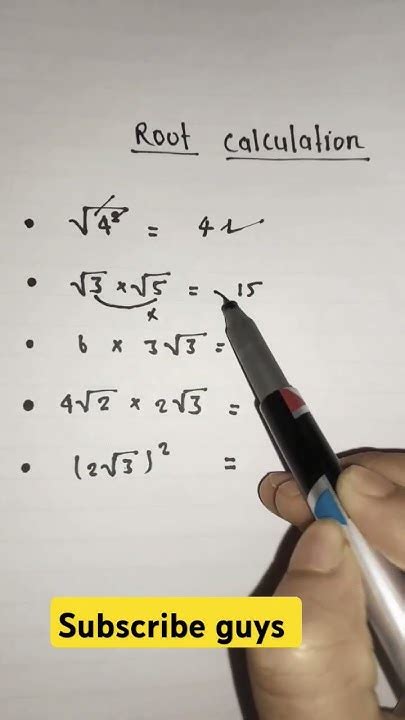 Root Calculation
• √4² = 4
• √3 × √5 = 15
×
• 6 × 3√3 =
• 4√2 × 2√3 =
• (2√3)² =
Subscribe guys